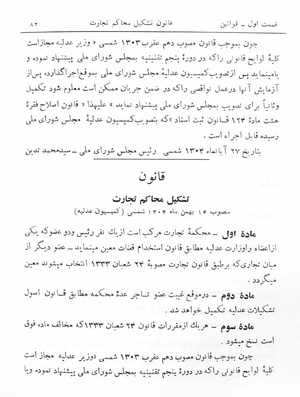 قسمت اول – قوانین
قانون تشکیل محاکم تجارت
۸۲
چون بموجب قانون مصوب دهم عقرب ۱۳۰۳ شمسی «وزیر عدلیه مجاز است
کلیهٔ لوایح قانونی را که در دورهٔ پنجم تقنینیه بمجلس شورای ملی پیشنهاد نموده
یا مینماید پس از تصویب کمیسیون عدلیهٔ مجلس شورای ملی بموقع اجرا گذارده، پس از
آزمایش آنها در عمل نواقصی را که در ضمن جریان ممکن است معلوم شود تکمیل
و ثانیاً برای تصویب بمجلس شورای ملی پیشنهاد نماید» علیهذا «قانون اصلاح فقرهٔ
هشت مادهٔ ۱۲۴ قانون ثبت اسناد» که بتصویب کمیسیون عدلیهٔ مجلس شورای ملی
رسیده قابل اجراء است.
بتاریخ ۲۷ آبانماه ۱۳۰۴ شمسی رئیس مجلس شورای ملی – سید محمد تدین
قانون
تشکیل محاکم تجارت
مصوب ۱۴ بهمن ماه ۱۳۰۴ شمسی (کمیسیون عدلیه)
مادهٔ اول – محکمهٔ تجارت مرکب است از یك نفر رئیس و دو عضو که یکی
از اعضاء را وزارت عدلیه مطابق قانون استخدام قضات معین مینماید – عضو دیگر از
میان تجاری که بر طبق قانون تجارت مصوبهٔ ۲۴ شعبان ۱۳۳۳ انتخاب میشوند معین
میگردد.
مادهٔ دوم – در موقع غیبت عضو تاجر عدهٔ محکمه مطابق قانون اصول
تشکیلات عدلیه تکمیل خواهد شد.
مادهٔ سوم – هر یك از مقررات قانون ۲۴ شعبان ۱۳۳۳ که مخالف ماده فوق
است نسخ میشود.
چون بموجب قانون مصوب دهم عقرب ۱۳۰۳ شمسی «وزیر عدلیه مجاز است
کلیه لوایح قانونی را که در دوره پنجم تقنینیه بمجلس شورای ملی پیشنهاد نموده و یا